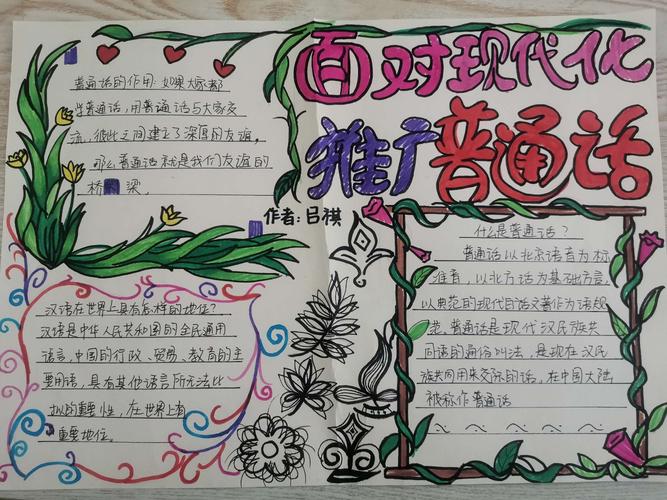 面对现代化
推广普通话
作者:吕祺
普通话的作用:如果大家都
学普通话,用普通话与大家交
流,彼此之间建立了深厚的友谊。
那么普通话就是我们友谊的
桥梁。
什么是普通话?
普通话以北京语音为标
准音,以北方话为基础方言,
以典范的现代白话文著作为语规
范。普通话是现代汉民族共
同语的通俗叫法,是现在汉民
族共同用来交际的话,在中国大陆
被称作普通话
汉语在世界上具有怎样的地位?
汉语是中华人民共和国的全民通用
语言,中国的行政、贸易、教育的主
要用语,具有其他语言所无法比
拟的重要性,在世界上有
重要地位。